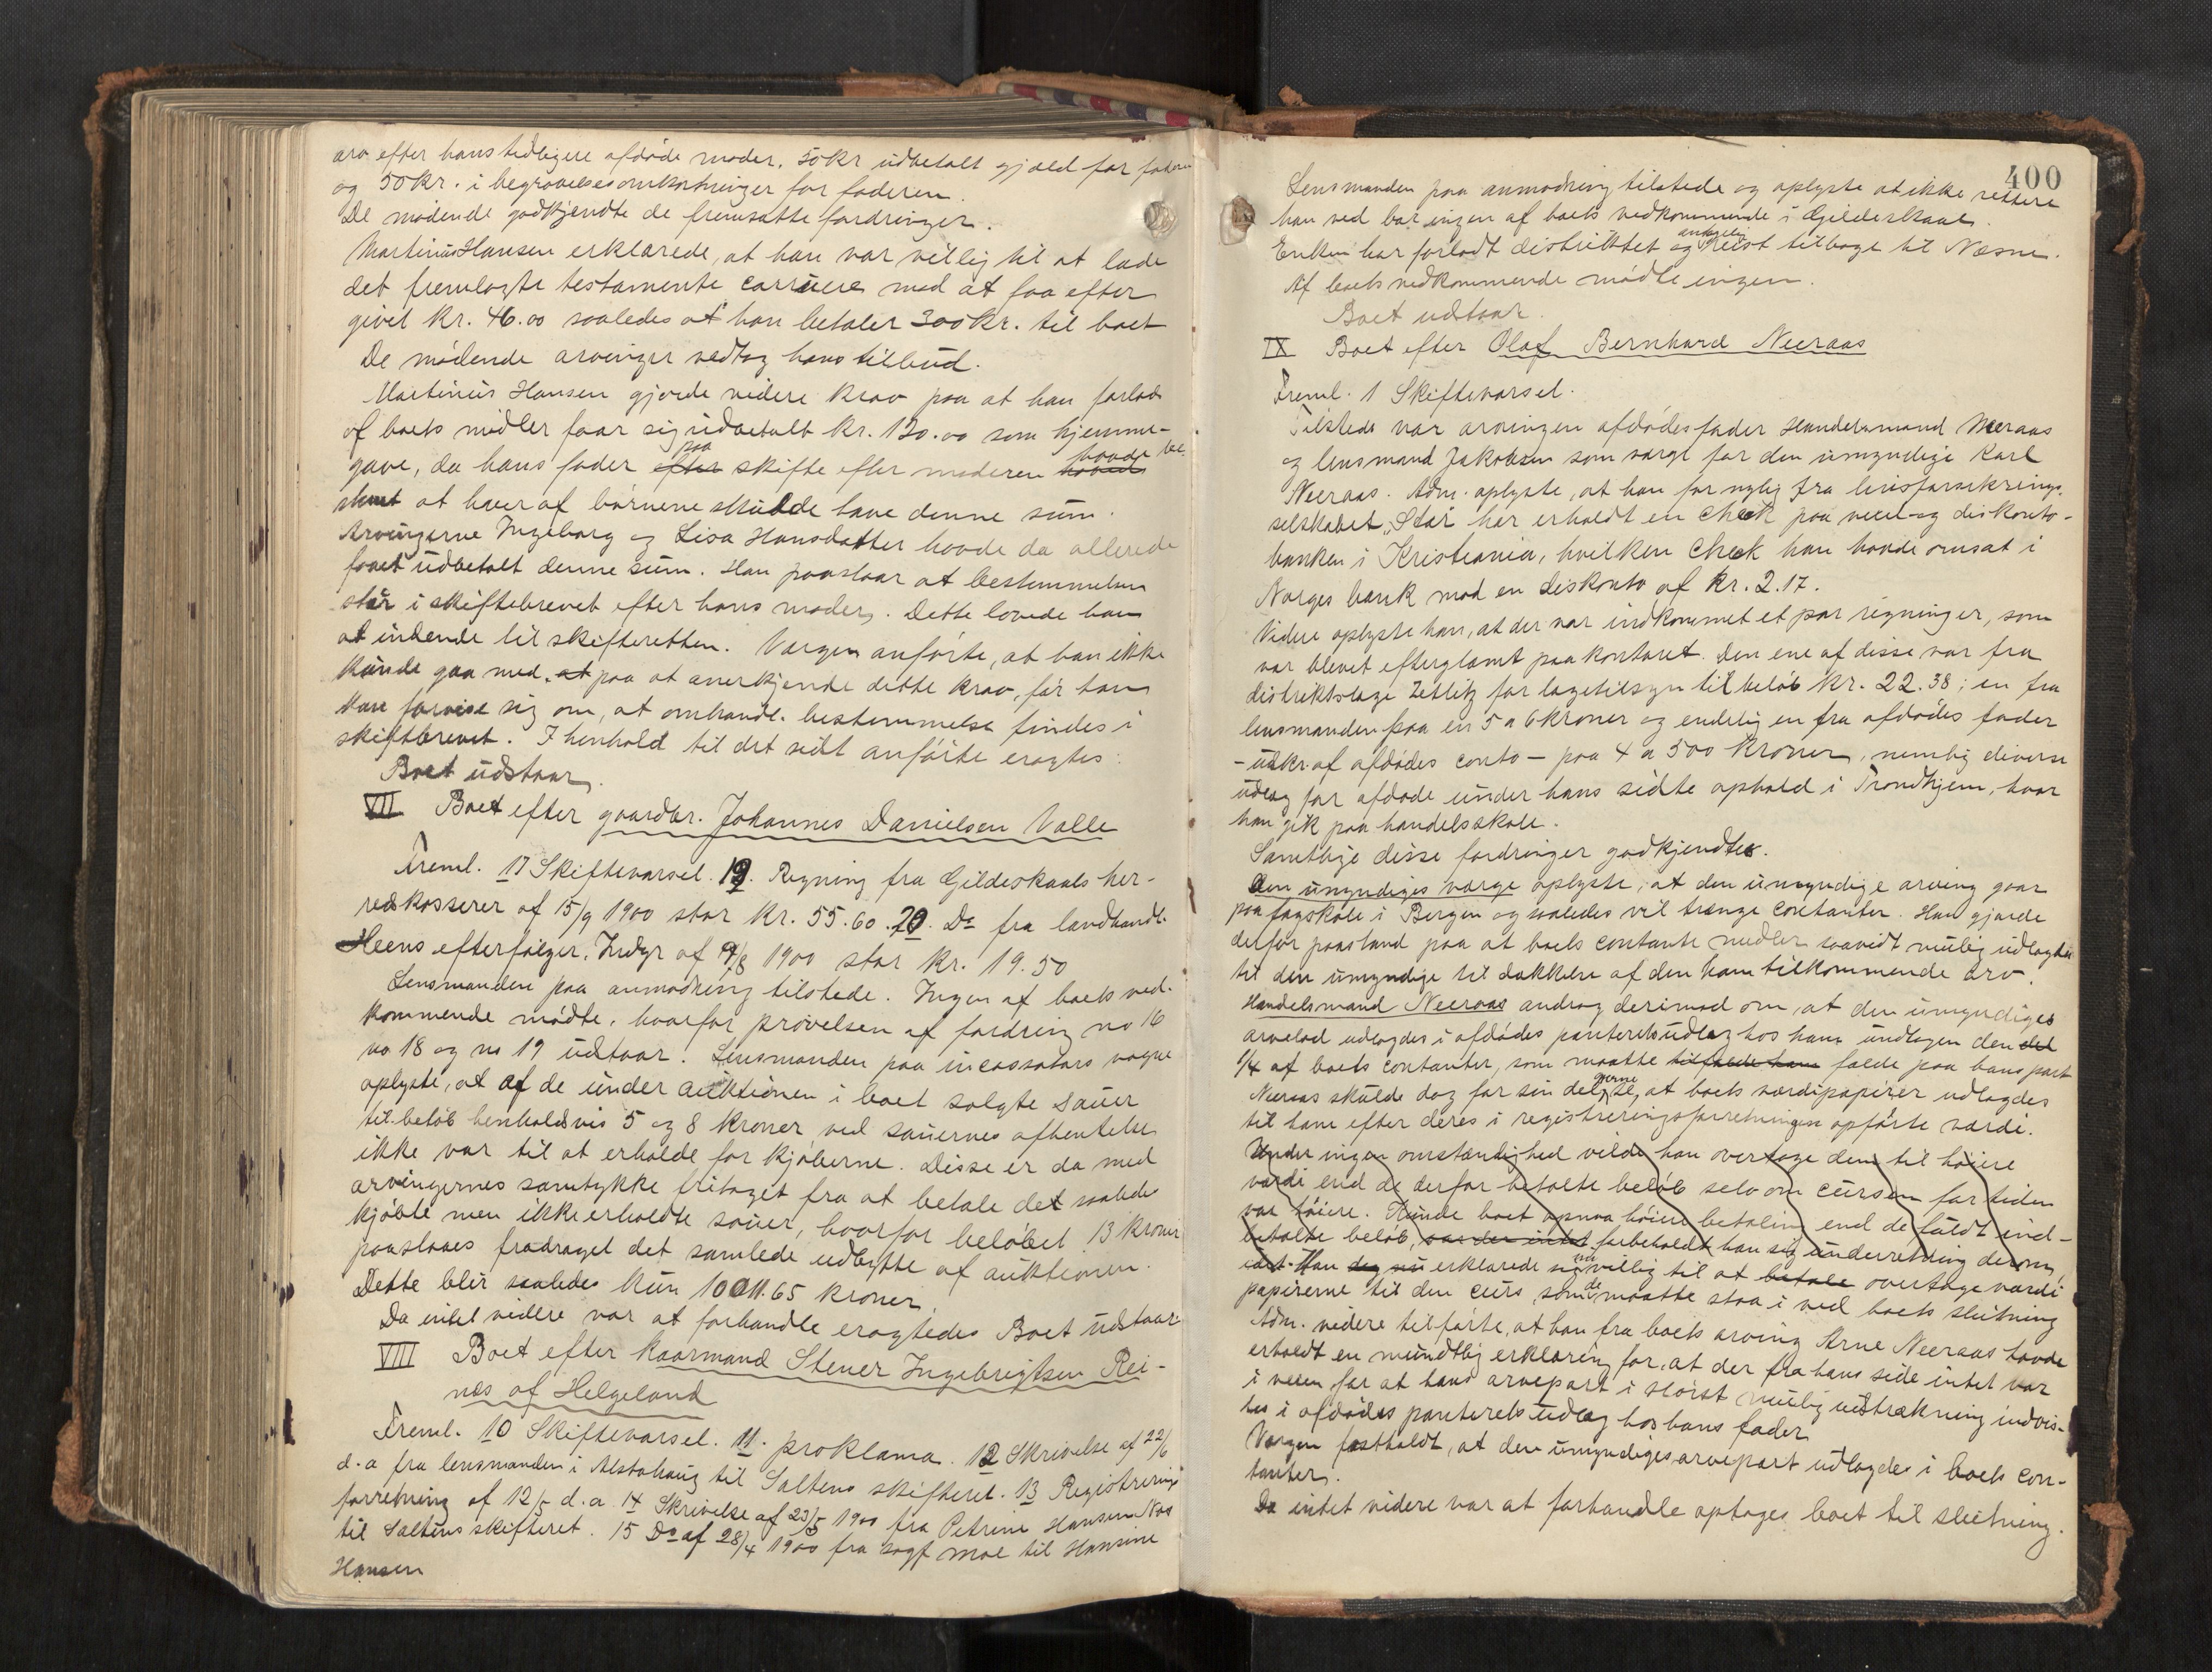 arv efter hans tidligere afdøde moder, 50 kr udbetalt gjæld for faderen
og 50 kr. i begravelsesomkostninger for faderen.
De mødende godkjendte de fremsatte fordringer.
Martinus Hansen erklærede, at han var villig til at lade
det fremlagte testamente cassere mod at faa efter
givet kr. 46.00 saaledes at han betaler 300 kr. til boet
De mødende arvinger vedtog hans tilbud.
Martinus Hansen gjorde videre krav paa at han forlods
af boets midler faar sig udbetalt kr. 120.00 som hjemme-
gave, da hans fader efter paa skifte efter moderen havde havde be-
stemt at hver af børnene skulde have denne sum.
Arvingerne Ingeborg og Lisa Hansdatter havde da allerede
faaet udbetalt denne sum. Han paastaar at bestemmelsen
står i skiftebrevet efter hans moder. Dette lovede han
at indsende til skifteretten. Vargen anførte, at han ikke
kunde gaa med at paa at anerkjende dette krav, før han
kan forvisse sig om, at omhandl. bestemmelse findes i
skiftebrevet. I henhold til det sidst anførte eragtes:
Boet udstaar.
VII Boet efter gaardbr. Johannes Danielsen Valle
Freml. 17 Skiftevarsel. 19. Regning fra Gildeskaals her-
redskasserer af 15/9 1900 stor kr. 55.60. 20. Do fra landhandl.
Heens efterfølger, Indyr af 9/8 1900 stor kr. 19.50
Lensmanden paa anmodning tilstede. Ingen af boets ved-
kommende mødte, hvorfor prøvelsen af fordring no 16
no 18 og no 19 udstaar. Lensmanden paa incassators vegne
oplyste, at af de under auktionen i boet solgte sauer
til beløb henholdsvis 5 og 8 kroner, ved sauernes afhentelse
ikke var til at erholde for kjøberne. Disse er da med
arvingernes samtykke fritaget fra at betale det saaledes
kjøbte men ikke erholdte sauer, hvorfor beløbet 13 kroner
paastaaes fradraget det samlede udbytte af auktionen.
Dette blir saaledes kun 1001.65 kroner.
Da intet videre var at forhandle eragtedes Boet udstaar
VIII Boet efter kaarmand Stener Ingebrigtsen Rei-
næs af Helgeland
Freml. 10 Skiftevarsel. 11. proklama. 12 Skrivelse af 22/6
d.a fra lensmanden i Alstahaug til Saltens skifteret. 13 Registrerings
forretning af 12/5 d.a. 14 Skrivelse af 23/5 1900 fra Petrine Hansen Næs
til Saltens skifteret. 15 Do af 28/4 1900 fra sagf Moe til Hansine
Hansen
400
Lensmanden paa anmodning tilstede og oplyste at ikke rettere
han ved bor ingen af boets vedkommende i Gildeskaal.
Enken har forladt distriktet og antagelig reist tilbage til Næsne.
Af boets vedkommende mødte ingen.
Boet udstaar.
IX Boet efter Olaf Bernhard Neeraas
Freml. 1 Skiftevarsel.
Tilstede var arvingen afdødes fader Handelsmand Neeraas
og lensmand Jakobsen som værge for den umyndige Karl
Neeraas. Adm. oplyste, at han for nylig fra livsforsikrings-
selskabet "Star" har erholdt en check paa vexel og diskonto-
banken i Kristiania, hvilken Check han havde omsat i
Norges bank mod en diskonto af kr. 2.17.
Videre oplyste han, at der var indkommet et par regninger, som
var blevet efterglemt paa kontoret. Den ene af disse var fra
distriktslæge Zetlitz for lægetilsyn til beløb kr. 22.38; en fra
lensmanden paa en 5 a 6 kroner og endelig en fra afdødes fader
- udskr. af afdødes conto - paa 4 a 500 kroner, nemlig diverse
udlæg for afdøde under hans sidste ophold i Trondhjem, hvor
han gik paa handelsskole.
Samtlige disse fordringer godkjendtes.
Den umyndiges værge oplyste, at den umyndige arving gaar
paa fagskole i Bergen og saaledes vil trænge contanter. Han gjorde
derfor paastand paa at boets contante midler saavidt mulig udlagdes
til den umyndige til dækkelse af den ham tilkommende arv.
Handelsmand Neeraas androg derimod om, at den umyndiges
arvelod udlagdes i afdødes panterets udlæg hos ham undtagen den del
1/4 af boets contanter, som maatte tilfalde ham falde paa hans part
Neeraas skulde dog for sin del gjerne se, at boets værdipapirer udlagdes
til ham efter deres i registreringsforretningen opførte værdi.
Under ingen omstændighed vilde han overtage dem til høiere
værdi end de derfor betalte beløb selv om cursen for tiden
var høiere. Kunde boet opnaa høiere betaling end de fuldt ind-
betalte beløb, var der intet forbeholdt han sig underretning derom,
idet Han erklærede sig nu villig til at betale overtage værdi
papirerne til den curs, som de maatte staa i ved boets slutning
Adm. videre tilførte, at han fra boets arving Arne Neeraas havde
erholdt en mundtlig erklæring for, at der fra hans side intet var
i veien for at hans arvepart i størst mulig udstrækning indvis-
tes i afdødes panterets udlæg hos hans fader
Vargen fastholdt, at den umyndiges arvepart udlagdes i boets con-
tanter.
Da intet videre var at forhandle optages boet til slutning.